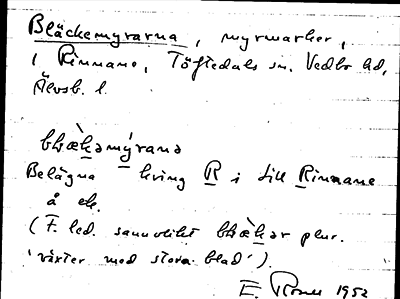 Bläckemyrarna, myrmarker,
i Rinnane, Töftedals sn. Vedbo hd,
Älvsb. l.
bḷæ̀kəmýrana
Belägna kring R i till Rinnane
å
(F. led. sannolikt bḷæ̀kər plur.
'växter med stora blad').
E. 1952